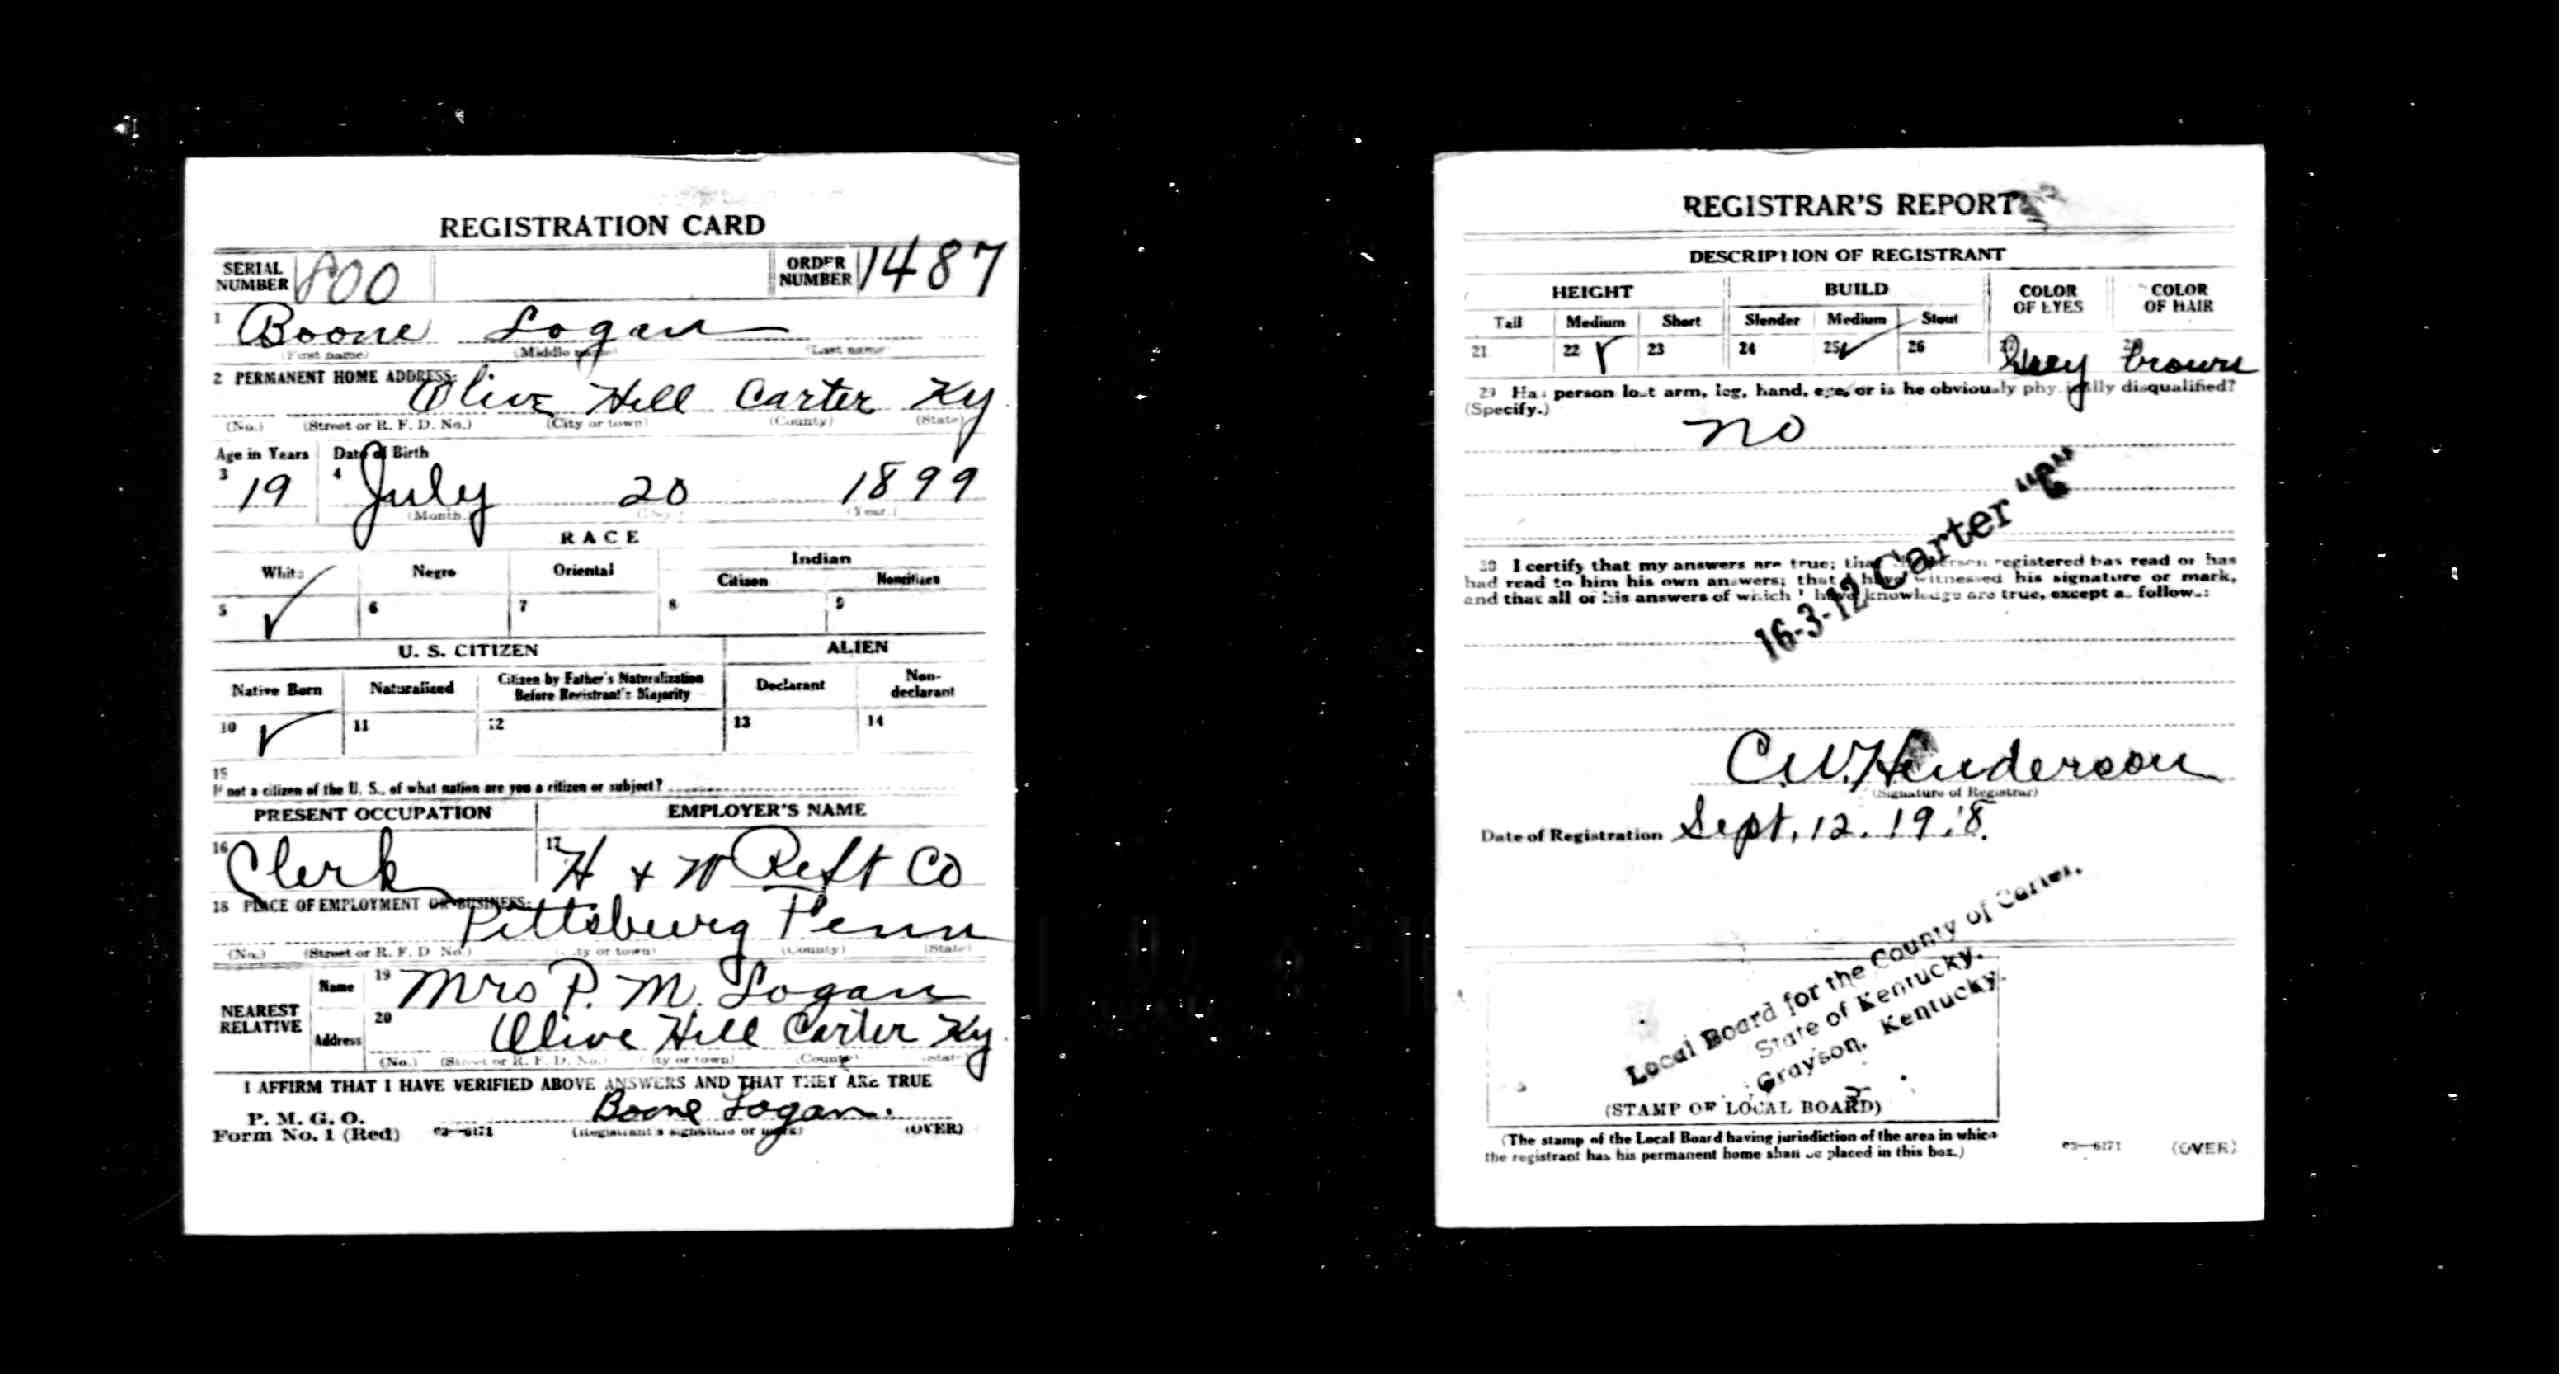 REGISTRATION CARD
SERIAL NUMBER 800 ORDER NUMBER 1487
1 Boone Logan
(First name) (Middle name) (Last name)
2 PERMANENT HOME ADDRESS: Olive Hill Carter Ky
(No.) (Street or R. F. D. No.) (City or town) (County) (State)
Age in Years Date of Birth
3 19 4 July 20 1899
(Month.) (Day.) (Year.)
RACE
White Negro Oriental Indian
Citizen Noncitizen
5 ✓ 6 7 8 9
U. S. CITIZEN ALIEN
Native Born Naturalized Citizen by Father's Naturalization Before Registrant's Majority Declarant Non-declarant
10 ✓ 11 12 13 14
15
If not a citizen of the U. S., of what nation are you a citizen or subject?
PRESENT OCCUPATION EMPLOYER'S NAME
16 Clerk 17 H + W Reft Co
18 PLACE OF EMPLOYMENT OR BUSINESS:
Pittsburg Penn
(No.) (Street or R. F. D. No.) (City or town) (County) (State)
NEAREST RELATIVE Name 19 Mrs P. M. Logan
Address 20 Olive Hill Carter Ky
(No.) (Street or R. F. D. No.) (City or town) (County) (State)
I AFFIRM THAT I HAVE VERIFIED ABOVE ANSWERS AND THAT THEY ARE TRUE
P. M. G. O.
Form No. 1 (Red) 03—6171 Boone Logan.
(Registrant's signature or mark) (OVER)
REGISTRAR'S REPORT
DESCRIPTION OF REGISTRANT
HEIGHT BUILD COLOR OF EYES COLOR OF HAIR
Tall Medium Short Slender Medium Stout
21 22 ✓ 23 24 25 ✓ 26 27 Grey 28 brown
29 Has person lost arm, leg, hand, eye, or is he obviously physically disqualified?
(Specify.)
no
30 I certify that my answers are true; that the person registered has read or has
had read to him his own answers; that I have witnessed his signature or mark,
and that all of his answers of which I have knowledge are true, except as follows:
16-3-12 Carter "C"
C. W. Henderson
(Signature of Registrar)
Date of Registration Sept, 12. 1918.
Local Board for the County of Carter,
State of Kentucky,
Grayson, Kentucky.
(STAMP OF LOCAL BOARD)
(The stamp of the Local Board having jurisdiction of the area in which
the registrant has his permanent home shall be placed in this box.)
03—6171 (OVER)